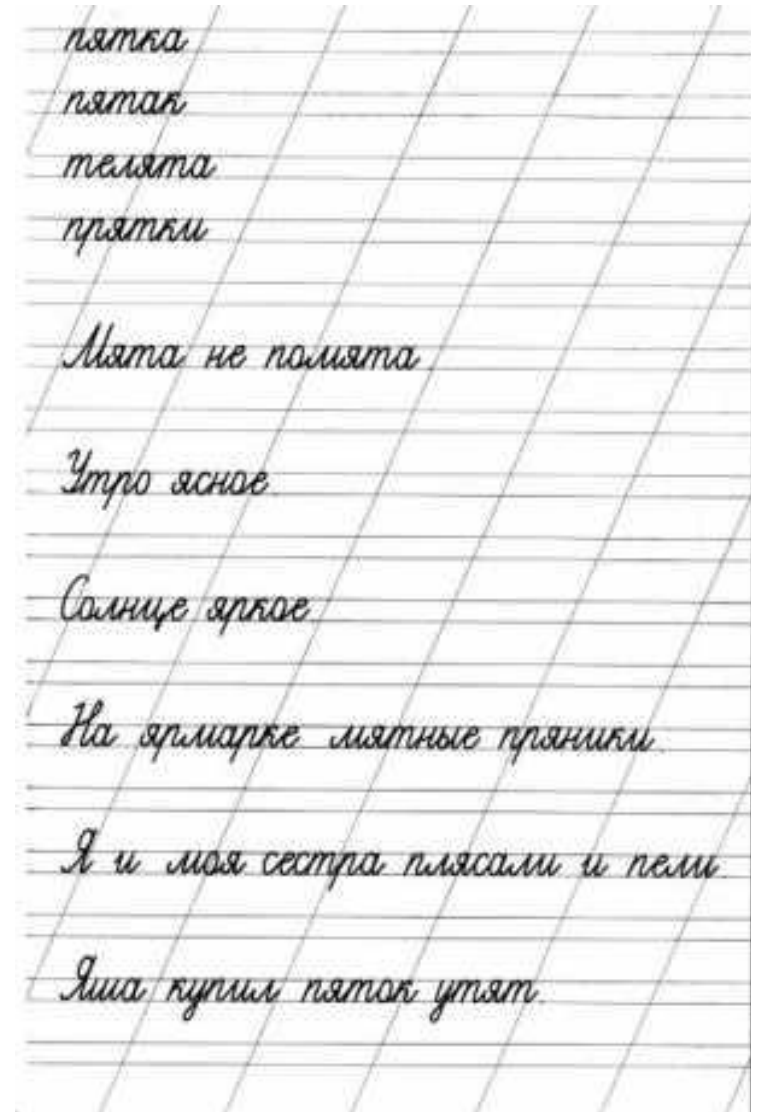 пятка
пятак
телята
прятки
Мята не помята
Утро ясное
Солнце яркое
На ярмарке мятные пряники
Я и моя сестра плясали и пели
Яша купил пяток утят